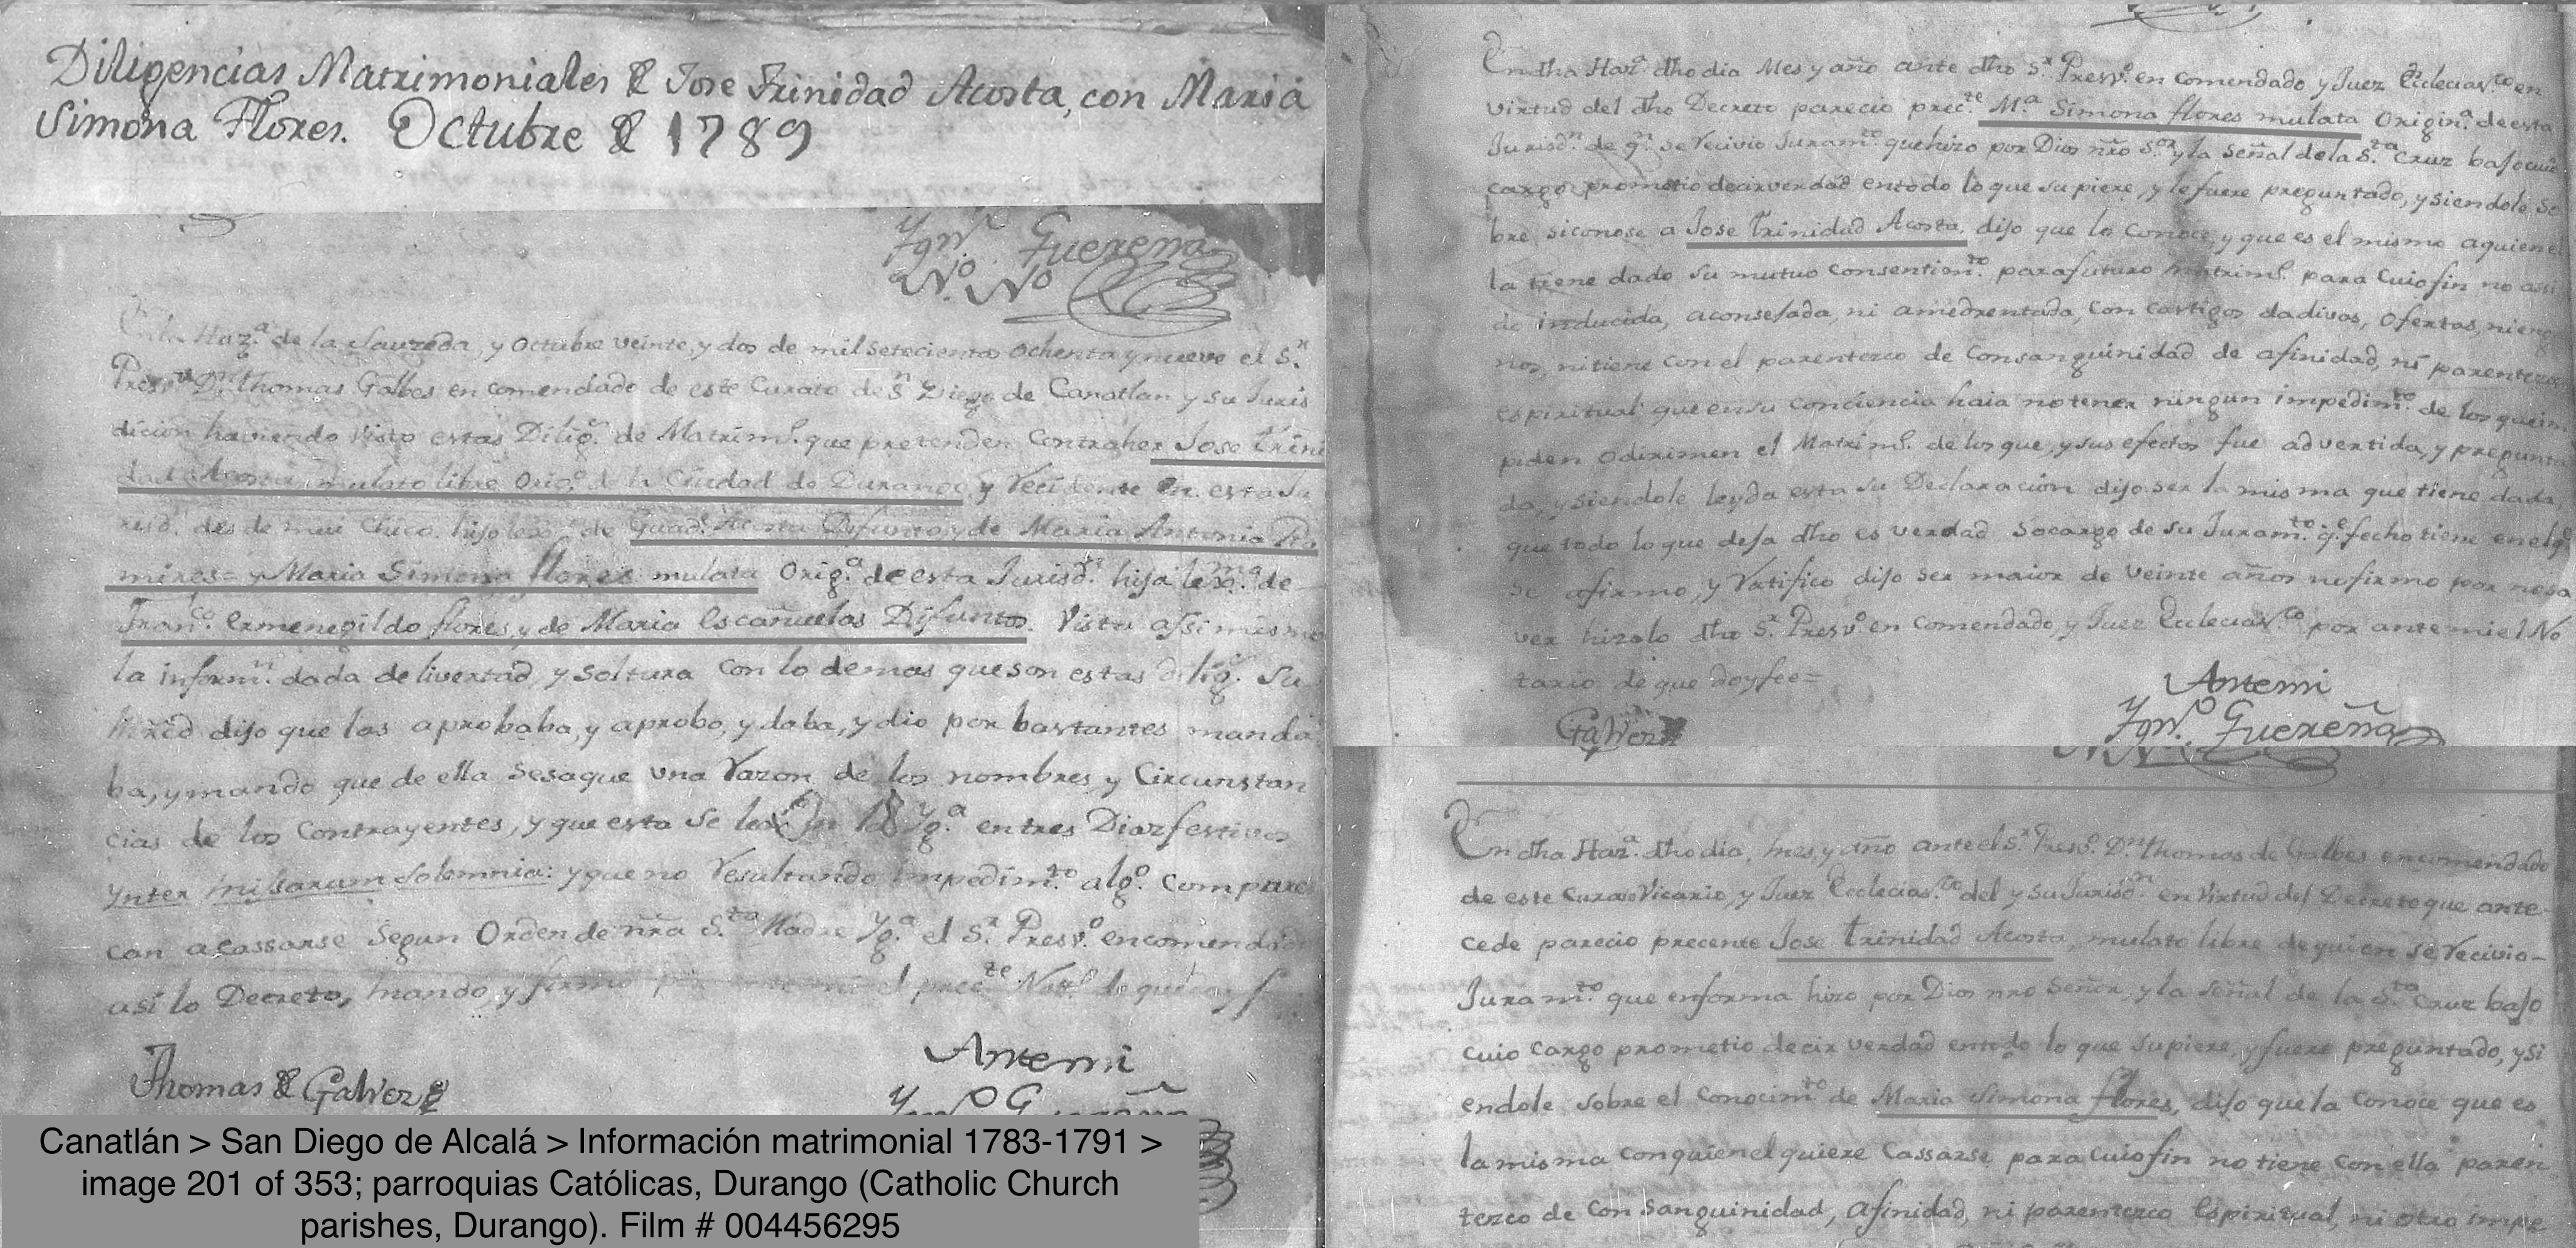 Diligencias Matrimoniales de Jose Trinidad Acosta, con Maria
Simona Flores. Octubre de 1789
Ygn.º Guereña
N.º N.º
En la Haz.ª de la Sauzeda, y Octubre veinte, y dos de mil setecientos ochenta y nueve el S.r
Presv.º D.n Thomas Galbes en comendado de este Curato de S.n Diego de Canatlan y su Juris
dicion haviendo visto estas Dilig.s de Matrim.º que pretenden Contraher Jose Trini
dad Acosta, mulato libre Orig.º de la Ciudad de Durango y Recidente en esta Ju
risd.n des de mui Chico, hijo lex.º de Guad.e Acosta Difunto, y de Maria Antonia Ra
mires= y Maria Simona flores mulata Orig.ª de esta Jurisd.n hija lex.ma de
Fran.co Ermenegildo flores, y de Maria Escañuelas Difuntos. Vista assi mismo
la inform.n dada de livertad, y soltura con lo demas que son estas dilig.s Su
Mrẽd dijo que las aprobaba, y aprobo, y daba, y dio por bastantes manda
ba, y mando que de ella se saque una razon de los nombres y Circunstan
cias de los Contrayentes, y que esta se lea en la Yg.ª en tres Dias festivos
Ynter misarum solemnia: y que no resultando impedim.to alg.º compares
can a cassarse segun Orden de ñra S.ta Madre Yg.ª el S.r Presv.º encomendado
asi lo Decreto, mando, y firmo por ante mi el prec.te Not.º de que doy f
Thomas de Galvez
Antemi
Ygn.º Guereña
En dha Haz.ª dho dia Mes y año ante dho S.r Presv.º en comendado y Juez Eclecias.co en
virtud del dho Decreto parecio prec.te M.ª Simona flores mulata Origin.ª de esta
Jurisd.n de q.n se recivio Juram.to que hizo por Dios nr̃o S.or y la señal de la S.ta Cruz bajo cuio
cargo prometio decir verdad en todo lo que supiere, y le fuere preguntado, y siendole so
bre si conose a Jose Trinidad Acosta, dijo que lo conoce, y que es el mismo a quien
la tiene dado su mutuo consentim.to para futuro matrim.º para cuio fin no a si
do inducida, aconsejada, ni amedrentada, con castigos dadivas, ofertas, ni enga
nos, ni tiene con el parentezco de Consanguinidad de afinidad, ni parentezco
espiritual que en su conciencia haia no tener ningun impedim.to de los que im
piden o dirimen el Matrim.º de los que, y sus efectos fue advertida, y pregunta
da, y siendole leyda esta su Declaracion dijo ser la misma que tiene dada,
que todo lo que deja dho es verdad socargo de su Juram.to q.e fecho tiene en el q.e
se afirmo, y ratifico dijo ser maior de veinte años no firmo por no sa
ver hizolo dho S.r Presv.º en comendado, y Juez Eclecias.co por ante mi el No
tario de que doy fee=
Galvez
Antemi
Ygn.º Guereña
En dha Haz.ª dho dia, mes, y año ante el S.r Presv.º D.n Thomas de Galbes encomendado
de este Curato Vicario, y Juez Ecclecias.co del y su Jurisd.n en virtud del Decreto que ante-
cede parecio precente Jose Trinidad Acosta, mulato libre de quien se recivio-
Juram.to que enforma hizo por Dios nro Señor, y la señal de la S.ta Cruz bajo
cuio cargo prometio decir verdad en todo lo que supiere, y fuere preguntado, y si
endole sobre el Conocim.to de Maria Simona flores, dijo que la conoce que es
la misma con quien el quiere Cassarse para cuio fin no tiene con ella paren
tezco de Consanguinidad, Afinidad, ni parentezco Espiritual, ni otro impe
Canatlán > San Diego de Alcalá > Información matrimonial 1783-1791 >
image 201 of 353; parroquias Católicas, Durango (Catholic Church
parishes, Durango). Film # 004456295